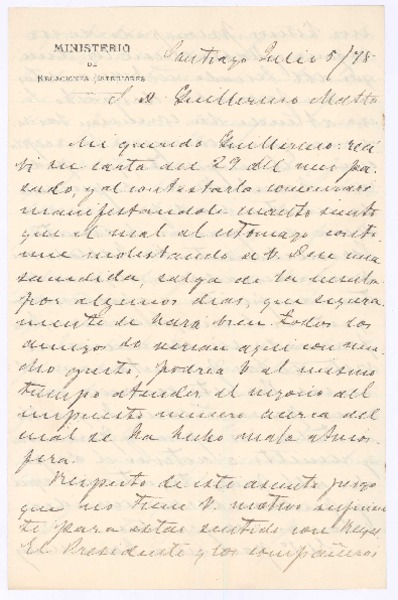 MINISTERIO
DE
RELACIONES EXTERIORES
Santiago Julio 5/78
S. D. Guillermo Matta
Mi querido Guillermo: reci
bi su carta del 29 del mes pa
sado, y al contestarla comenzaré
manifestandole cuanto siento
que el mal al estomago conti
nue molestando a V. Dese una
sacudida, salga de la
por algunos dias, que segura
mente le hará bien. Todos los
amigos lo verian aqui con mu
cho gusto, podria V al mismo
tiempo atender el negocio del
impuesto minero acerca del
cual se ha hecho mala atmos
fera.
Respecto de este asunto juzgo
que no tiene V. motivo suficien
te para estar sentido con
El Presidente y los compañeros